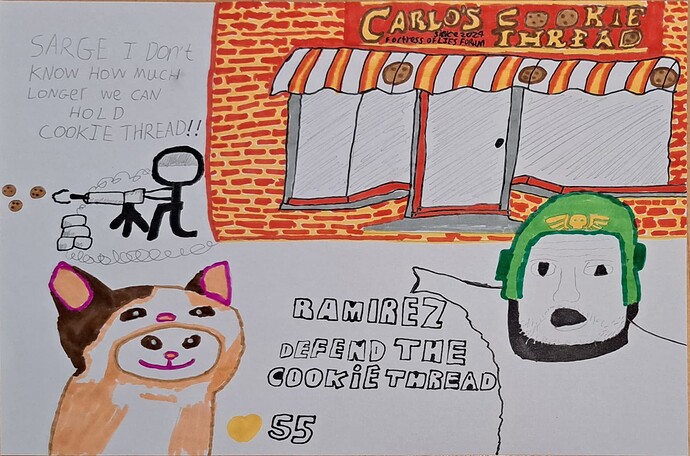 SARGE I DON'T
KNOW HOW MUCH
LONGER WE CAN
HOLD
COOKIE THREAD!!
CARLO'S COOKIE
THREAD
SINCE 2024
FORTRESS OF LIES FORUM
RAMIREZ
DEFEND THE
COOKIE THREAD
55